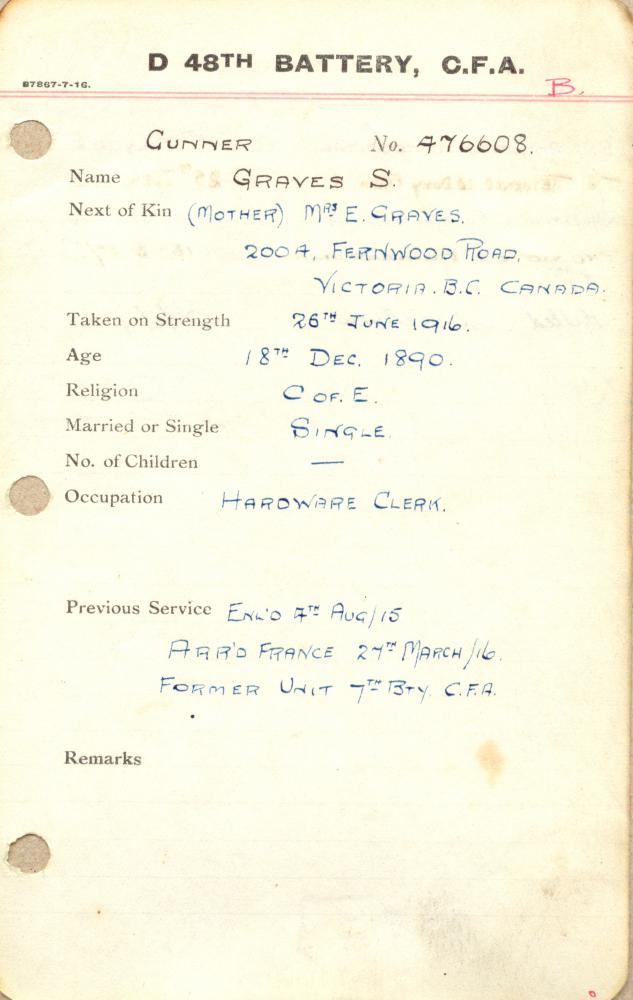 D 48TH BATTERY, C.F.A.
87867-7-16.
B.
GUNNER No. 476608.
Name GRAVES S.
Next of Kin (MOTHER) MRS E. GRAVES.
2004, FERNWOOD ROAD,
VICTORIA. B.C. CANADA.
Taken on Strength 26TH JUNE 1916.
Age 18TH DEC. 1890.
Religion C OF. E.
Married or Single SINGLE.
No. of Children —
Occupation HARDWARE CLERK.
Previous Service ENL'D 4TH AUG/15
ARR'D FRANCE 24TH MARCH/16.
FORMER UNIT 7TH BTY. C.F.A.
Remarks